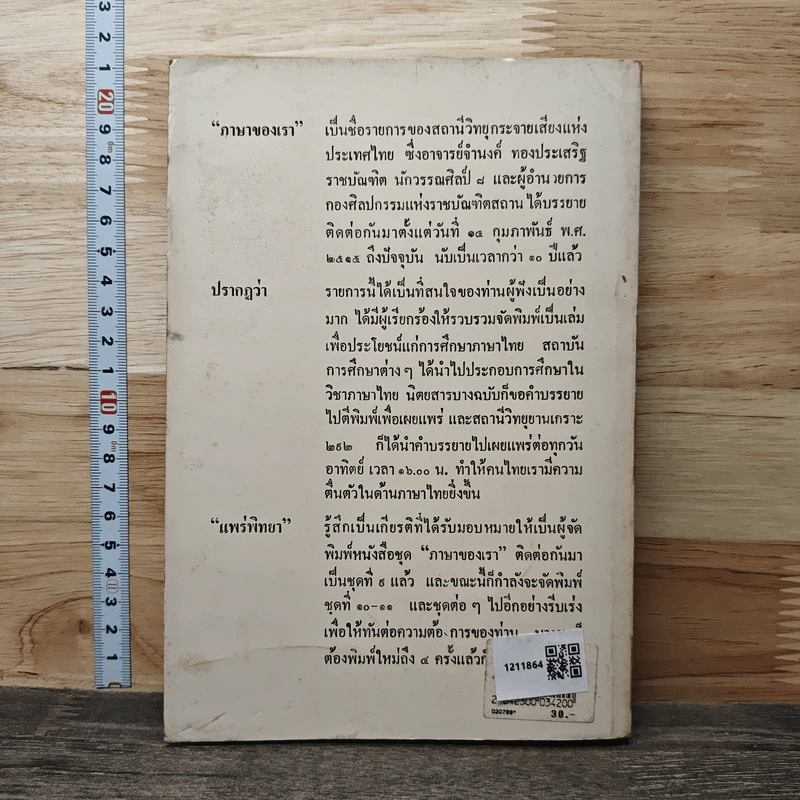 “ภาษาของเรา” เป็นชื่อรายการของสถานีวิทยุกระจายเสียงแห่ง
ประเทศไทย ซึ่งอาจารย์จำนงค์ ทองประเสริฐ
ราชบัณฑิต นักวรรณศิลป์ ๘ และผู้อำนวยการ
กองศิลปกรรมแห่งราชบัณฑิตสถาน ได้บรรยาย
ติดต่อกันมาตั้งแต่วันที่ ๑๔ กุมภาพันธ์ พ.ศ.
๒๕๑๕ ถึงปัจจุบัน นับเป็นเวลากว่า ๑๐ ปีแล้ว
ปรากฏว่า รายการนี้ได้เป็นที่สนใจของท่านผู้ฟังเป็นอย่าง
มาก ได้มีผู้เรียกร้องให้รวบรวมจัดพิมพ์เป็นเล่ม
เพื่อประโยชน์แก่การศึกษาภาษาไทย สถาบัน
การศึกษาต่าง ๆ ได้นำไปประกอบการศึกษาใน
วิชาภาษาไทย นิตยสารบางฉบับก็ขอคำบรรยาย
ไปตีพิมพ์เพื่อเผยแพร่ และสถานีวิทยุยานเกราะ
๒๙๒ ก็ได้นำคำบรรยายไปเผยแพร่ต่อทุกวัน
อาทิตย์ เวลา ๑๖.๐๐ น. ทำให้คนไทยเรามีความ
ตื่นตัวในด้านภาษาไทยยิ่งขึ้น
“แพร่พิทยา” รู้สึกเป็นเกียรติที่ได้รับมอบหมายให้เป็นผู้จัด
พิมพ์หนังสือชุด “ภาษาของเรา” ติดต่อกันมา
เป็นชุดที่ ๙ แล้ว และขณะนี้ก็กำลังจะจัดพิมพ์
ชุดที่ ๑๐-๑๑ และชุดต่อ ๆ ไปอีกอย่างรีบเร่ง
เพื่อให้ทันต่อความต้องการของท่าน
ต้องพิมพ์ใหม่ถึง ๔ ครั้งแล้ว
1211864
020799*
30.-
3
2
1
20
9
8
7
6
5
4
3
2
1
10
9
8
7
6
5
4
3
2
1